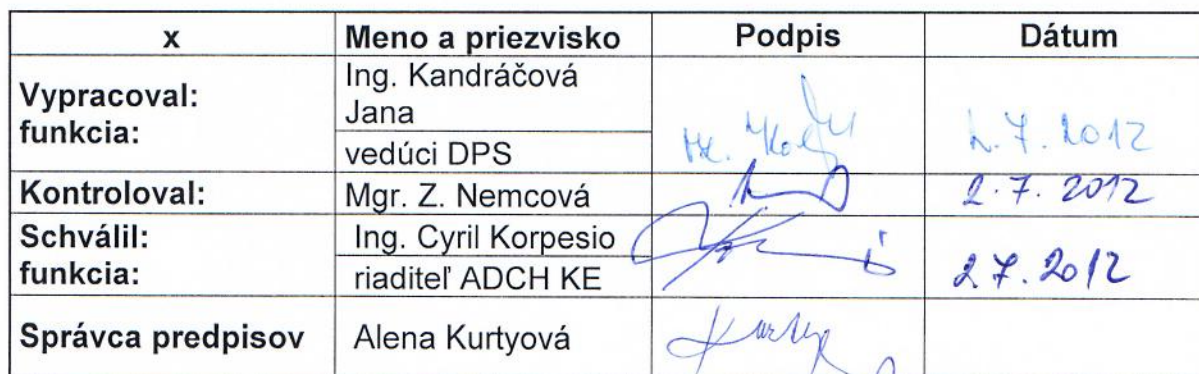 x Meno a priezvisko Podpis Dátum
Vypracoval:
funkcia:
Ing. Kandráčová
Jana
vedúci DPS
2.7.2012
Kontroloval: Mgr. Z. Nemcová 2.7.2012
Schválil:
funkcia:
Ing. Cyril Korpesio
riaditeľ ADCH KE
2.7.2012
Správca predpisov Alena Kurtyová